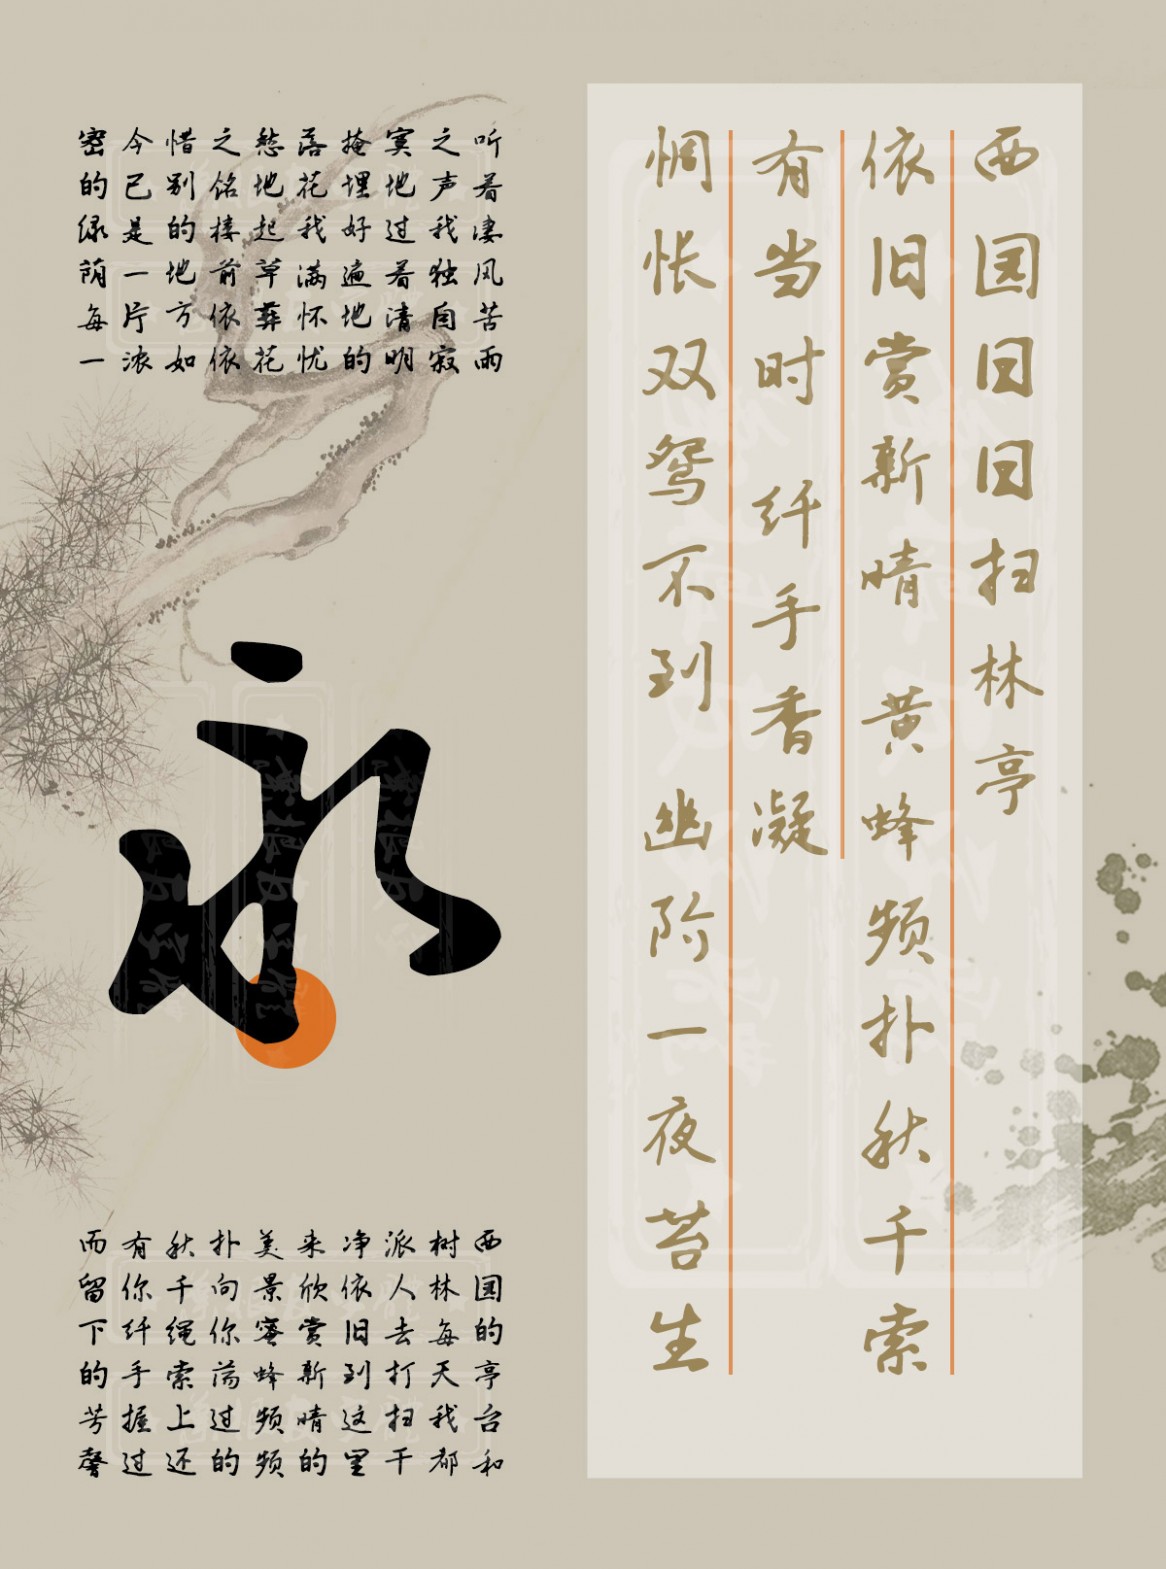 西园日日扫林亭
依旧赏新晴 黄蜂频扑秋千索
有当时 纤手香凝
惆怅双鸳不到 幽阶一夜苔生
听着凄风苦雨
之声我独自寂
寞地过着清明
掩埋好遍地的
落花我满怀忧
愁地起草葬花
之铭楼前依依
惜别的地方如
今已是一片浓
密的绿荫每一
永
西园的亭台和
树林每天我都
派人去打扫干
净依旧到这里
来欣赏新晴的
美景蜜蜂频频
扑向你荡过的
秋千绳索上还
有你纤手握过
而留下的芳馨